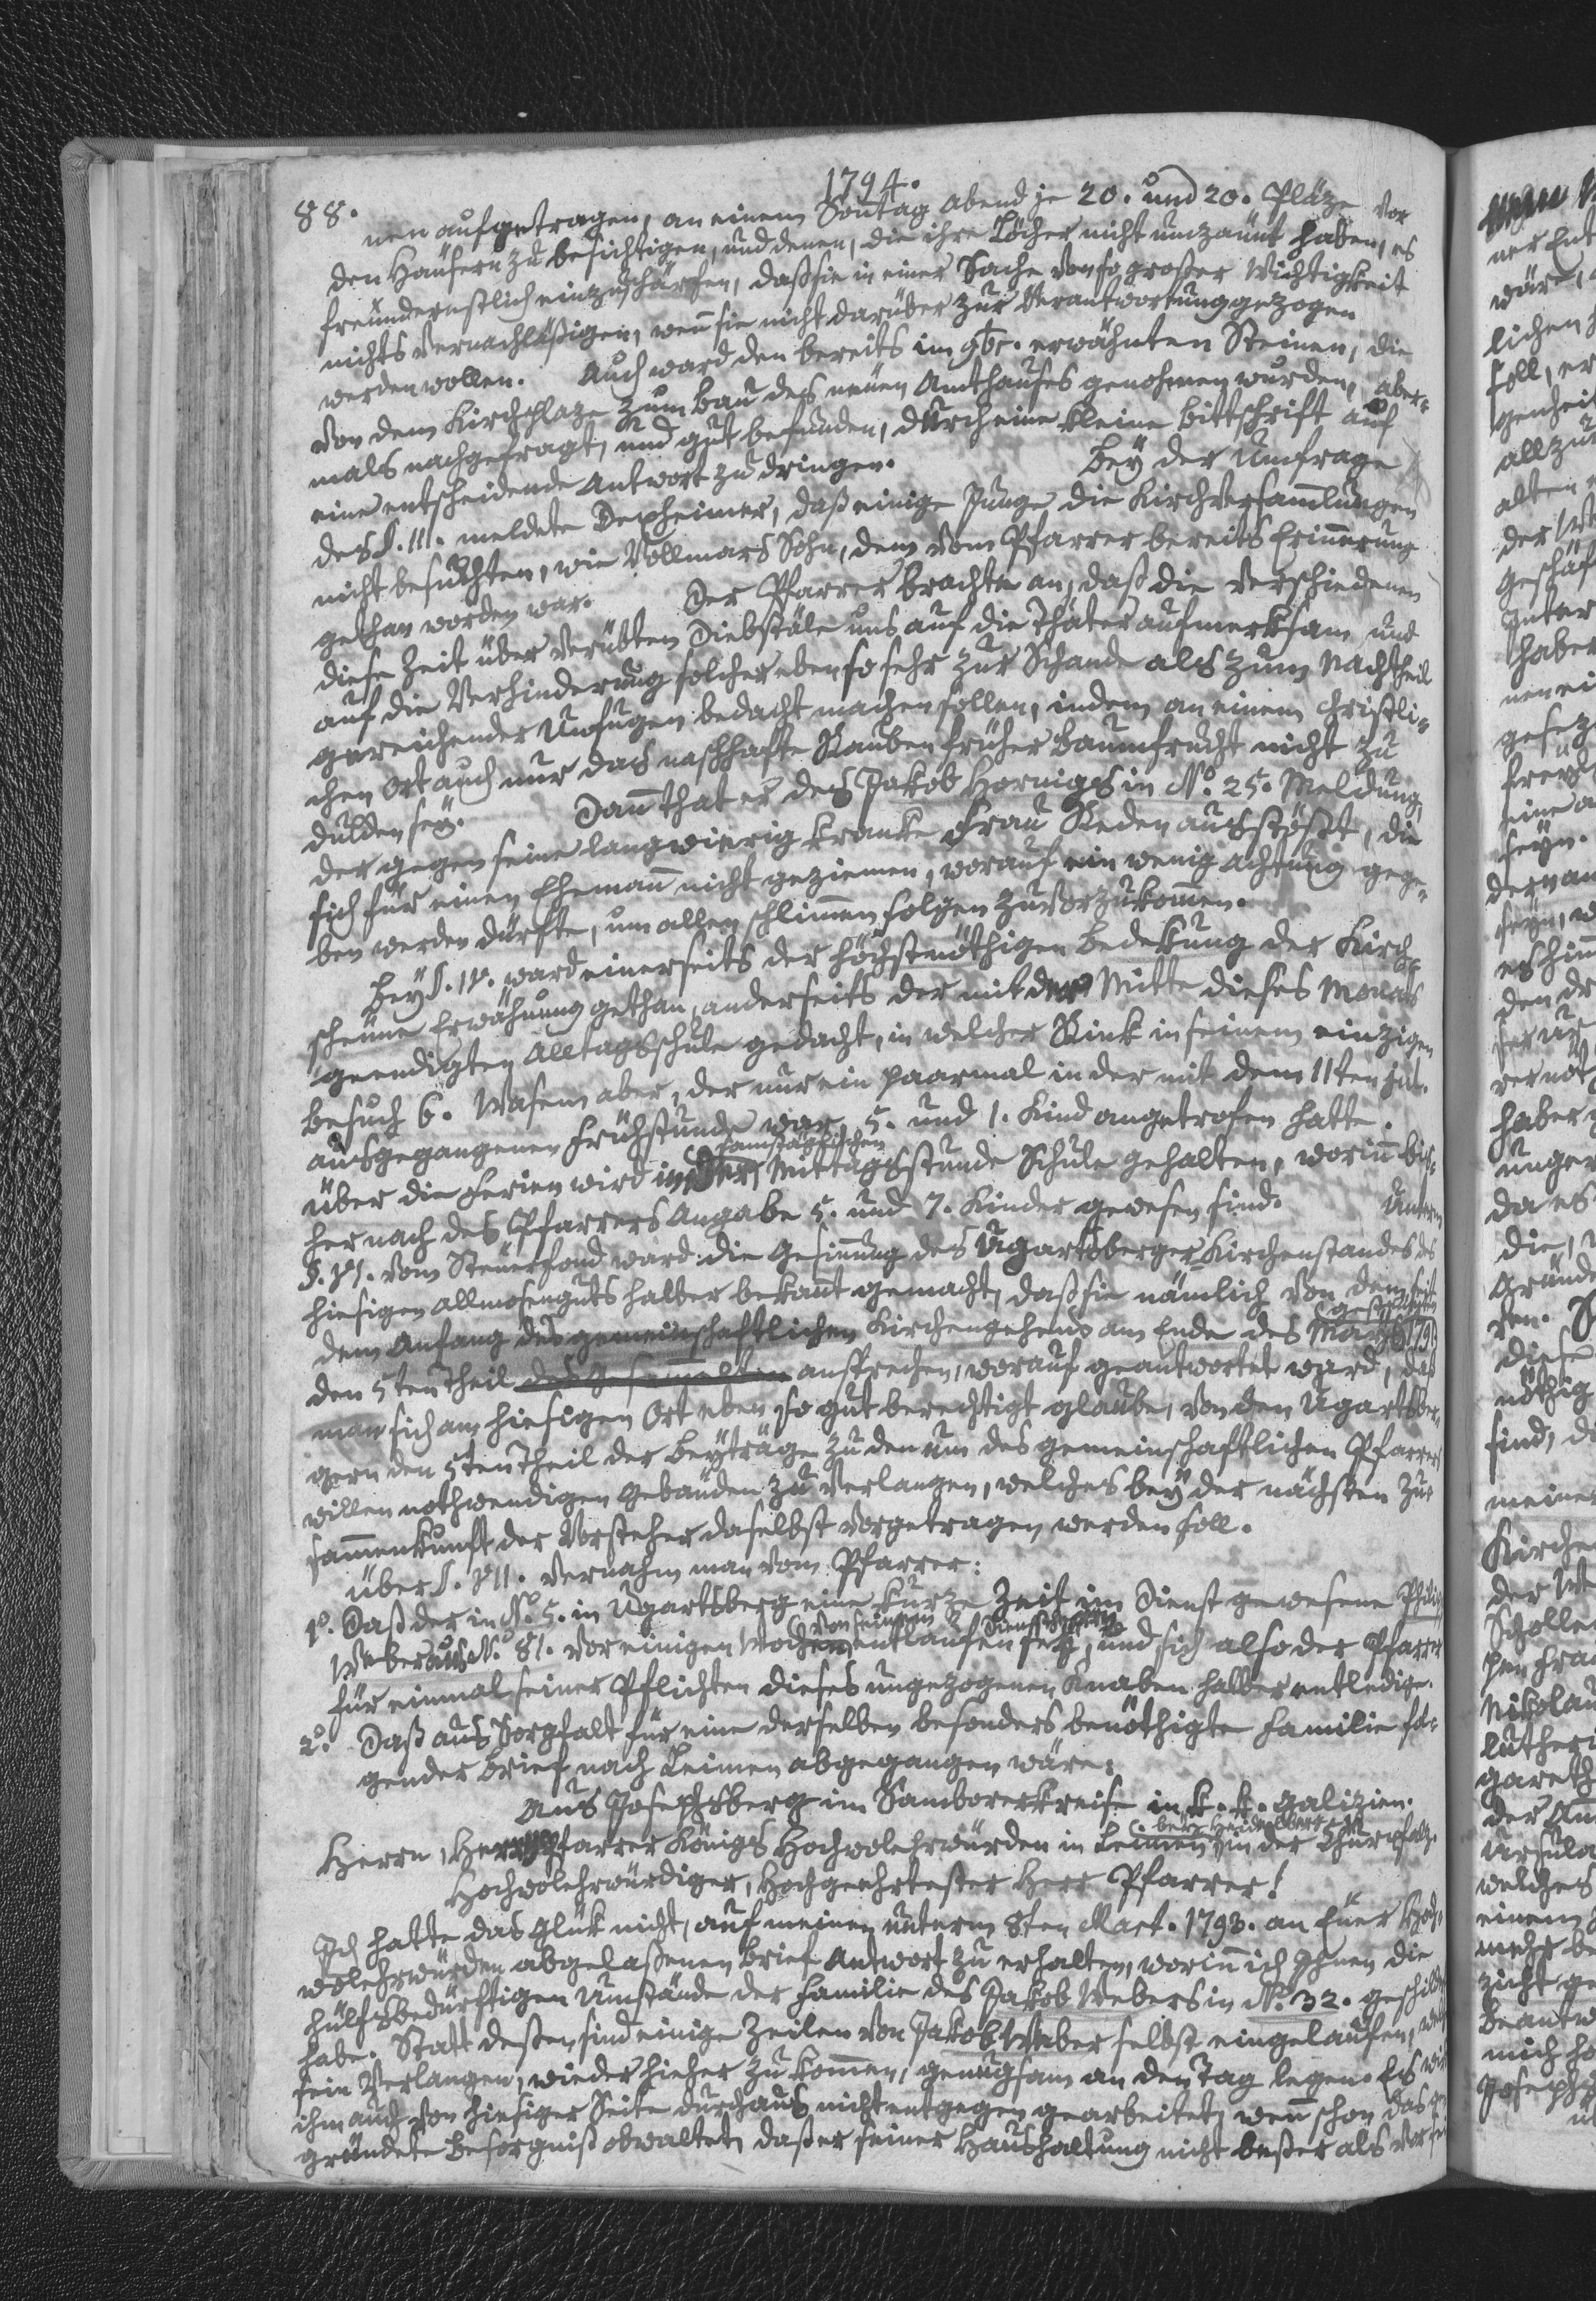 88.
1794.
nen aufgetragen, an einem Sontag Abend je 20. und 20. Pläze vor
den Häusern zu besichtigen, und denen, die ihre Löcher nicht umzäunt haben, es
freundernstlich einzuschärfen, daß sie in einer Sache von so großer Wichtigkeit
nichts vernachläßigen, wenn sie nicht darüber zur Verantwortung gezogen
werden wollen. Auch ward den bereits im 9br. erwähnten Steinen, die
von dem Kirchplaze zum Bau des neuen Amthauses genohmen wurden, aber-
mals nachgefragt, und gut befunden, durch eine kleine Bittschrift auf
eine entscheidende Antwort zu dringen. Bey der Umfrage
des §. III. meldete Dexheimer, daß einige Junge die Kirchversamlungen
nicht besuchten, wie Vollmars Sohn, dem vom Pfarrer bereits Erinnerung
gethan worden war. Der Pfarrer brachte an, daß die verschiedenen
diese Zeit über verübten Diebstäle uns auf die Thäter aufmerksam und
auf die Verhinderung solcher eben so sehr zur Schande als zum Nachtheil
gereichender Unfugen bedacht machen sollen, indem an einem christli-
chen Ort auch nur das naschhafte Rauben früher Baumfrucht nicht zu
dulden sey. Dann that er des Jakob Hornigs in No. 25. Meldung,
der gegen seine langwierig kranke Frau Reden ausstößt, die
sich für einen Ehemann nicht geziemen, worauf ein wenig Achtung gege-
ben werden dürfte, um allen schlimmen Folgen zuvorzukommen.
Bey §. IV. ward einerseits der höchstnöthigen Bedekung der Kirch-
scheune Erwähnung gethan, anderseits der mit der Mitte dieses Monats
geendigten Alltagsschule gedacht, in welcher Rink in seinem einzigen
Besuch 6. Wasem aber, der nur ein paarmal in der mit dem 11ten Jul.
ausgegangenen Frühstunde war, 5. und 1. Kind angetrofen hatte.
über die Ferien wird in der samstäglichen Mittagsstunde Schule gehalten, worinn bis-
her nach des Pfarrers Angabe 5. und 7. Kinder gewesen sind. Unterm
§. VI. vom Steuerfond ward die Gesinnung des Ugartsberger Kirchenstandes des
hiesigen Allmosenguts halber bekannt gemacht, daß sie nämlich von dem seit
dem Anfang des gemeinschaftlichen Kirchengehens am Ende des März 179
den 5ten Theil des Gesammelten ansprechen, worauf geantwortet ward, daß
man sich am hiesigen Ort eben so gut berechtigt glaube, von den Ugartsber-
gern den 5ten Theil der Beyträge zu den um des gemeinschaftlichen Pfarrers
willen nothwendigen Gebäuden zu verlangen, welches bey der nächsten Zu-
sammenkunft der Vorsteher daselbst vorgetragen werden soll.
über §. VII. vernahm man vom Pfarrer:
1o. Daß der in No. 5. in Ugartsberg eine kurze Zeit im Dienst gewesene Philip
Weber aus No. 81. vor einigen Wochen von seinem Dienstherrn entlaufen sey, und sich also der Pfarrer
für einmal seiner Pflichten dieses ungezogenen Knaben halber entledige.
2o. Daß aus Sorgfalt für eine derselben besonders benöthigte Familie fol-
gender Brief nach Leimen abgegangen wäre:
Aus Josephsberg im Samborerkreis in k. k. Galizien.
Herrn, Herrn Pfarrer Königs Hochwolehrwürden in Leimen bey Heidelberg in der Churpfalz.
Hochwolehrwürdiger, Hochgeehrtester Herr Pfarrer!
Ich hatte das Glük nicht, auf meinen unterm 8ten Mart. 1793. an Euer Hoch-
wolehrwürden abgelaßenen Brief Antwort zu erhalten, worinn ich Ihnen die
hülfsbedürftigen Umstände der Familie des Jakob Webers in No. 32. geschildert
habe. Statt deßen sind einige Zeilen von Jakob Weber selbst eingelaufen, welche
sein Verlangen, wieder hieher zu kommen, genugsam an den Tag legen. Es wird
ihm auch von hiesiger Seite durchaus nicht entgegen gearbeitet, wenn schon das ge-
gründete Besorgniß obwaltet, daß er seiner Haushaltung nicht beßer als vor sei